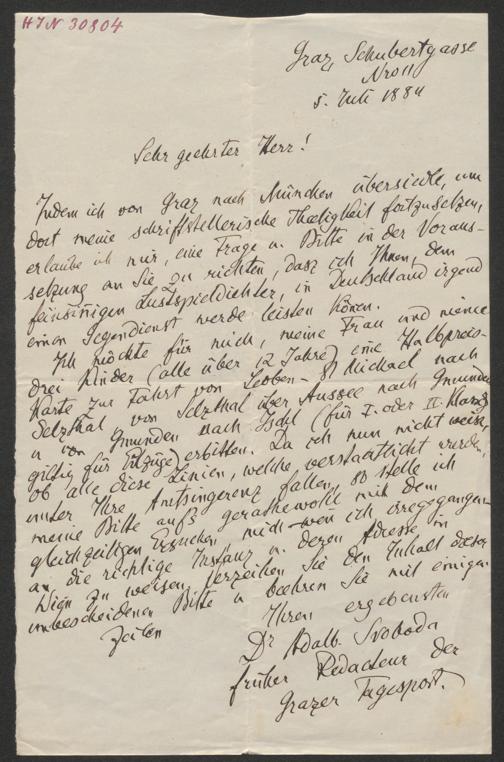 HIN 30804
Graz, Schubertgasse
Nro 11
5. Juli 1884
Sehr geehrter Herr!
Indem ich von Graz nach München übersiedle, um
dort meine schriftstellerische Thätigkeit fortzusetzen,
erlaube ich mir, eine Frage u. Bitte in der Voraus-
setzung an Sie zu richten, dass ich Ihnen, dem
feinsinigen Lustspieldichter, in Deutschland irgend
einen Gegendienst werde leisten könen.
Ich möchte für mich, meine Frau und meine
drei Kinder (alle über 12 Jahre) eine Halbpreis-
karte zur Fahrt von Leoben - St Michael nach
Selzthal von Selzthal über Aussee nach Gmunden
u von Gmunden nach Ischl (für I. oder II. Klasse
giltig für Eilzüge) erbitten. Da ich nun nicht weiss,
ob alle diese Linien, welche verstaatlicht wurden,
unter Ihre Amtsingerenz fallen, so stelle ich
meine Bitte aufs gerathewohl mit dem
gleichzeitigen Ersuchen, mich wen ich irregegangen
an die richtige Instanz u. deren Adresse in
Wien zu weisen. Verzeihen Sie den Inhalt dieser
unbescheidenen Bitte u beehren Sie mit einigen
Zeilen
Ihren ergebensten
Dr Adalb. Svoboda
früher Redacteur der
Grazer Tagespost.